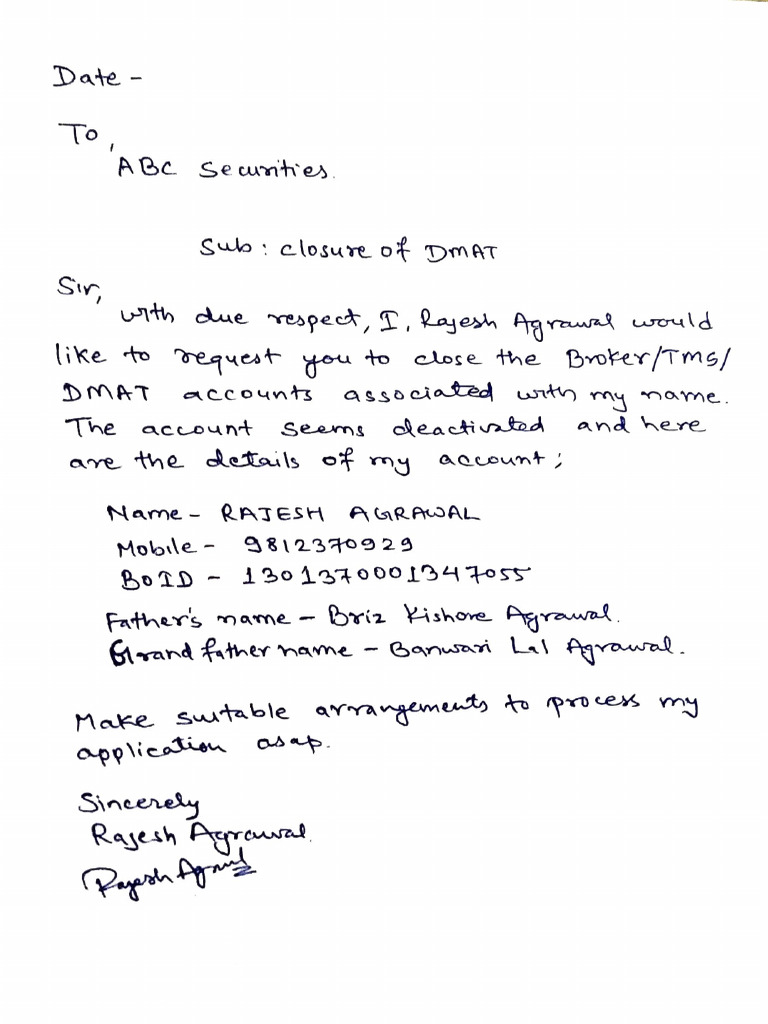 Date -
To,
ABC Securities.
Sub: closure of DMAT
Sir,
with due respect, I, Rajesh Agrawal would
like to request you to close the Broker/TMS/
DMAT accounts associated with my name.
The account seems deactivated and here
are the details of my account;
Name - RAJESH AGRAWAL
Mobile - 9812370929
BOID - 1301370001347055
Father's name - Briz Kishore Agrawal.
Grand father name - Banwari Lal Agrawal.
Make suitable arrangements to process my
application asap.
Sincerely
Rajesh Agrawal.
Rajesh Agrawal